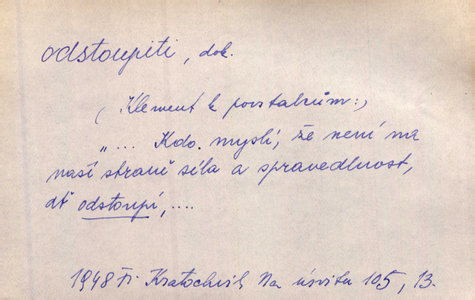 odstoupiti, dok.
(Klement k povstalcům:)
"... Kdo myslí, že není na
naší straně síla a spravedlnost,
ať odstoupí, ....
1948 Fr. Kratochvíl Na úsvitu 105, 13.